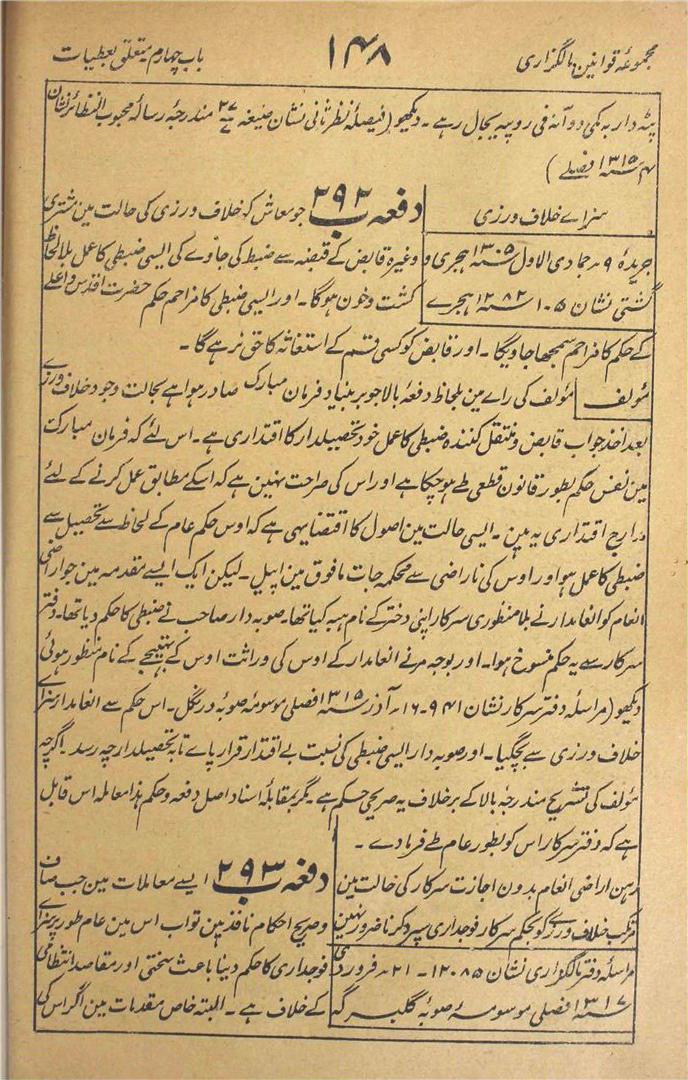 مجموعۂ قوانین مالگزاری
۱۴۸
باب چہارم متعلق بعطیات
پٹہ دار بہ کمی دو آنہ فی روپیہ بحال رہے ۔ دیکھو (فیصلۂ نظر ثانی نشان صیغہ ۲۷ مندرجۂ رسالۂ محبوب النظائر نشان
۴ سنہ ۱۳۱۵ فصلی )
سزاے خلاف ورزی
دفعہ ۲۹۲ ب جو معاش کہ خلاف ورزی کی حالت مین مشتری
جریدۂ ۹ ۔ جمادی الاول سنہ ۱۳۰۵ ہجری و
وغیرہ قابض کے قبضہ سے ضبط کی جاوے کی ایسی ضبطی کا عمل بلا لحاظ
گشتی نشان ۵ ۔ ۱ سنہ ۱۲۸۲ ہجرے
کشت و خون ہوگا ۔ اور ایسی ضبطی کا مزاحم حکم حضرت اقدس و اعلے
کے حکم کا مزاحم سمجھا جاویگا ۔ اور قابض کو کسی قسم کے استغاثہ کا حق نہ رہے گا ۔
مؤلف مؤلف کی راے مین بلحاظ دفعۂ بالا جو بر بنیاد فرمان مبارک صادر ہوا ہے بحالت وجود خلاف ورزے
بعد اخذ جواب قابض و منتقل کنندہ ضبطی کا عمل خود تحصیلدار کا اقتداری ہے ۔ اس لئے کہ فرمان مبارک
مین نفس حکم بطور قانون قطعی طے ہو چکا ہے اور اس کی صراحت نہین ہے کہ اسکے مطابق عمل کرنے کے لئے
مدارج اقتداری یہ ہین ۔ ایسی حالت مین اصول کا اقتضا یہی ہے کہ اوس حکم عام کے لحاظ سے تحصیل سے
ضبطی کا عمل ہو اور اوس کی ناراضی سے محکمہ جات مافوق مین اپیل ۔ لیکن ایک ایسے مقدمہ مین جو اراضی
انعام کو انعامدار نے بلا منظوری سرکار اپنی دختر کے نام ہبہ کیا تھا ۔ صوبہ دار صاحب نے ضبطی کا حکم دیا تھا ۔ دفتر
سرکار سے یہ حکم منسوخ ہوا ۔ اور بوجہ مرنے انعامدار کے اوس کی وراثت اوس کے بھتیجے کے نام منظور ہوئی
دیکھو (مراسلۂ دفتر سرکار نشان ۹۴۱ ۔ ۱۶ ۔ آذر سنہ ۱۳۱۵ فصلی موسومۂ صوبۂ ورنگل ۔ اس حکم سے انعامدار سزاے
خلاف ورزی سے بچگیا ۔ اور صوبہ دار ایسی ضبطی کی نسبت بے اقتدار قرار پاے تا بہ تحصیلدار چہ رسد ۔ اگرچہ
مؤلف کی تشریح مندرجۂ بالا کے برخلاف یہ صریحی حکم ہے ۔ مگر بمقابلۂ اسناد اصل دفعہ و حکم ہذا معاملہ اس قابل
ہے کہ دفتر سرکار اس کو بطور عام طے فرمادے ۔
رہن اراضی انعام بدون اجازت سرکار کی حالت مین
مرتکب خلاف ورزے کو بحکم سرکار فوجداری سپرد کرنا ضرور نہین
مراسلۂ دفتر مالگزاری نشان ۱۲۰۸۵ ۔ ۲۱ ۔ فروردی
سنہ ۱۳۱۷ فصلی موسومۂ صوبۂ گلبرگہ
دفعہ ۲۹۳ ب ایسے معاملات مین جب صاف
و صریح احکام نافذ ہین تو اب اس مین عام طور پر سزاے
فوجداری کا حکم دینا باعث سختی اور مقاصد انتظامی
کے خلاف ہے ۔ البتہ خاص مقدمات مین اگر اس کی